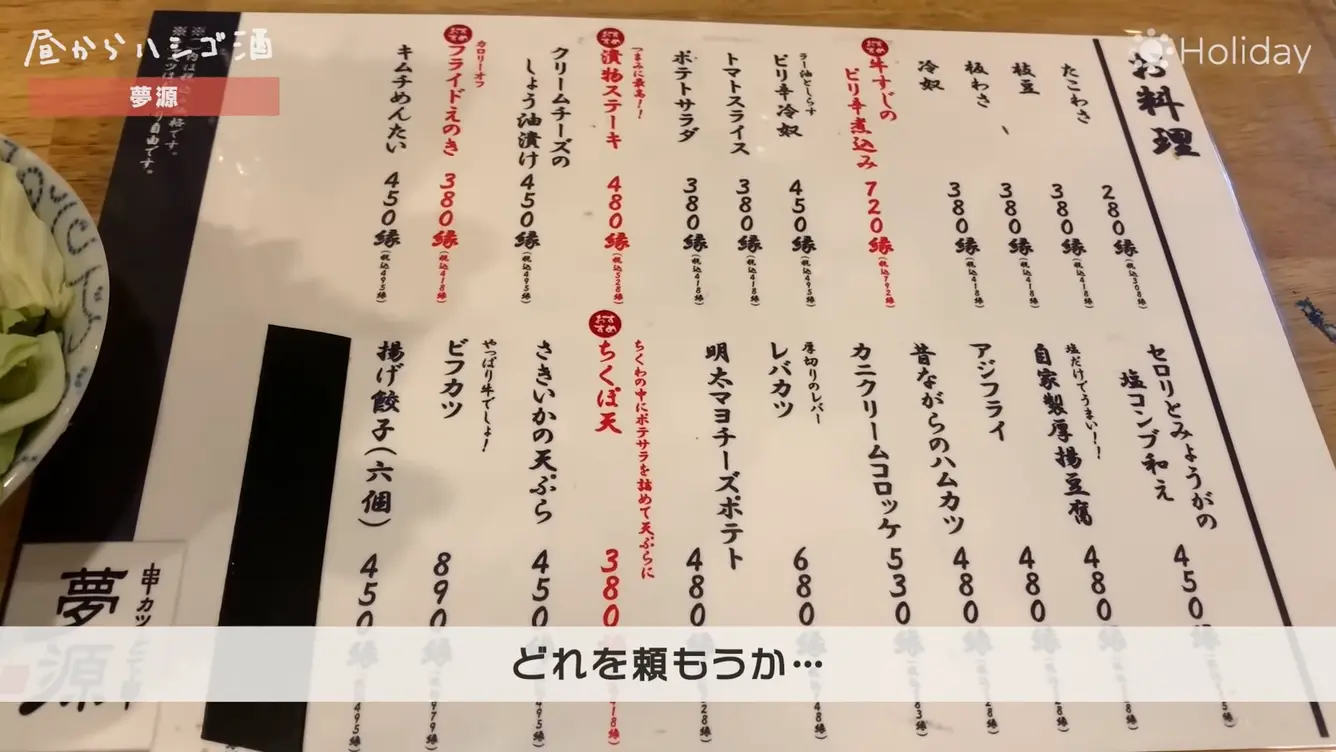 昼からハシゴ酒
夢源
Holiday
お料理
たこわさ
280縁(税込308縁)
枝豆
380縁(税込418縁)
板わさ
380縁(税込418縁)
冷奴
380縁(税込418縁)
おすすめ
牛すじの
ピリ辛煮込み
720縁(税込792縁)
ラー油としらす
ピリ辛冷奴
450縁(税込495縁)
トマトスライス
380縁(税込418縁)
ポテトサラダ
380縁(税込418縁)
つまみに最高!
おすすめ
漬物ステーキ
480縁(税込528縁)
クリームチーズの
しょう油漬け
450縁(税込495縁)
カロリーオフ
おすすめ
フライドえのき
380縁(税込418縁)
キムチめんたい
450縁(税込495縁)
セロリとみょうがの
塩コンブ和え
450縁
塩だけでうまい!!
自家製厚揚豆腐
480縁
アジフライ
480縁
昔ながらのハムカツ
480縁
カニクリームコロッケ
530縁
厚切りのレバー
レバカツ
680縁
明太マヨチーズポテト
480縁
ちくわの中にポテサラを詰めて天ぷらに
おすすめ
ちくぽ天
380縁
さきいかの天ぷら
450縁
やっぱり牛でしょ!
ビフカツ
890縁
揚げ餃子(六個)
450縁
串カツ
夢源
どれを頼もうか…